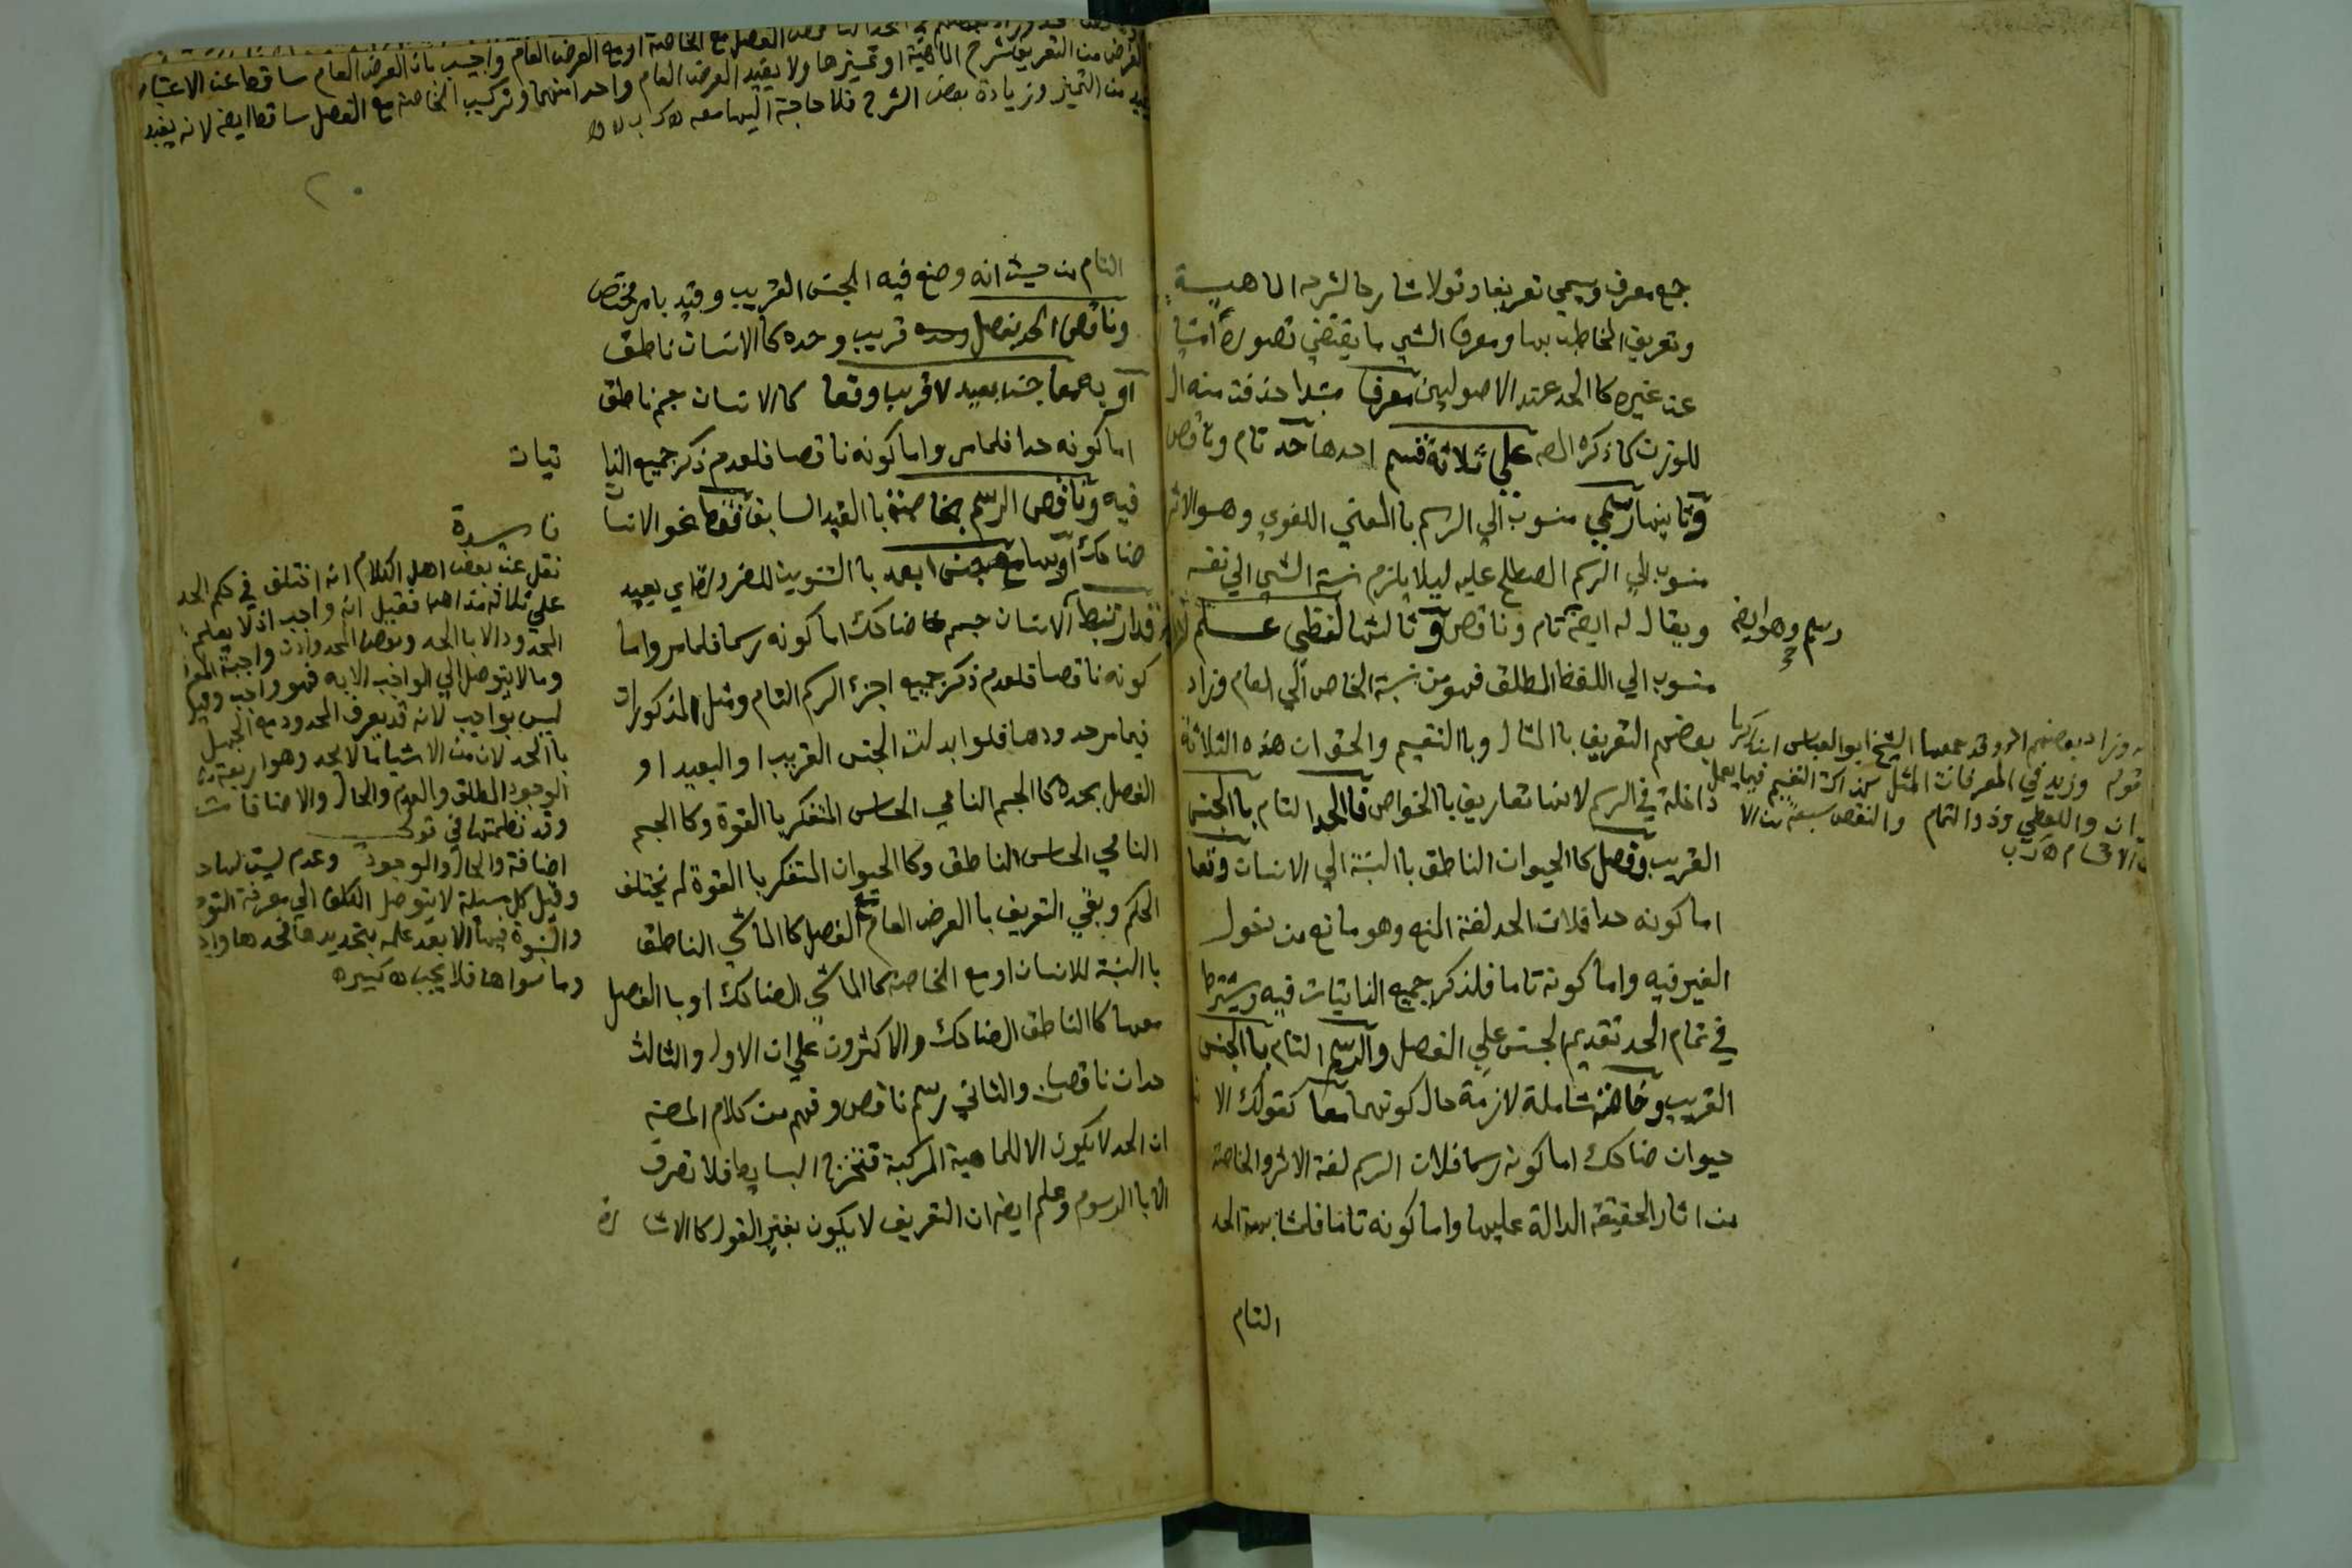 جمع معرف ويسمى تعريفا وقولا شارحا لشرحه الماهية
وتعريف المخاطب بها ومعرف الشي ما يقتضي تصوره امتيا
عن غيره كا الحد عند الاصوليين معرف مبتدا حذفت منه ال
للوزن كما ذكره المص على ثلاثة قسم احدها حد تام وناقص
وثانيها رسمي منسوب الى الرسم با المعني اللغوي وهو الاثر
منسوب الى الرسم المصطلح عليه ليلا يلزم نسبة الشي الي نفسه
ويقال له ايضا تام وناقص وثالثها لفظي علم
منسوب الي اللفظ المطلق فهو من نسبة الخاص الي العام وزاد
بعضهم التعريف با المثال وبا التقسيم والحق ان هذه الثلاثة
داخلة في الرسم لانها تعاريف با الخواص فا الحد التام با الجنس
القريب وفصل كا الحيوان الناطق با النسبة الي الانسان وقعا
اما كونه حدا فلان الحد لغة المنع وهو مانع من دخول
الغير فيه واما كونه تاما فلذكر جميع الذاتيات فيه ويشترط
في تمام الحد تقديم الجنس علي الفصل والرسم التام با الجنس
القريب وخاصة شاملة لازمة حال كونهما معا كقولك الا
حيوان ضاحك اما كونه رسما فلان الرسم لغة الاثر والخاصة
من اثار الحقيقة الدالة عليها واما كونه تاما فلمشابهة الحد
التام
رسم وهو ايضا
وزاد بعضهم الخ وقد جمعها الشيخ ابو العباس ابن زكريا
قوله وزيد في المعرفات المثل كذاك التقسيم فيما يعمل
ان واللفظي وذو التمام والنقص سبعة من الا
الغرض من التعريف شرح الماهية او تمييزها ولا يفيد العرض العام واحدا منهما وتركيب الخاصة مع الفصل ساقط ايضا لانه يفيد
من التميز وزيادة بعض الشرح فلا حاجة اليها معه
التام من حيث انه وضع فيه الجنس القريب وقيد بامر مختص
وناقص الحد بفصل وحده قريب وحده كا الانسان ناطق
او به معا جنس بعيد لا قريب وقعا كا الانسان جسم ناطق
اما كونه حدا فلما مر واما كونه ناقصا فلعدم ذكر جميع الذا
تيات
فيه وناقص الرسم بخاصة با القيد السابق فقط نحو الانسان
ضاحك او بها مع جنس ابعد با التنوين للضرورة اي بعيد
قد ارتبط الانسان جسم ضاحك اما كونه رسما فلما مر واما
كونه ناقصا فلعدم ذكر جميع اجزء الرسم التام ومثل المذكورات
فيما مر حدودها فلو ابدلت الجنس القريب او البعيد او
الفصل بحده كا الجسم النامي الحساس المتفكر با القوة وكا الجسم
النامي الحساس الناطق وكا الحيوان المتفكر با القوة لم يختلف
الحكم وبقي التعريف با العرض العام مع الفصل كا الماشي الناطق
با النسبة للانسان او مع الخاصة كا الماشي الضاحك او با الفصل
معها كا الناطق الضاحك والاكثرون علي ان الاول والثالث
حدان ناقصان والثاني رسم ناقص وفهم من كلام المصنف
ان الحد لا يكون الا للماهية المركبة فتخرج البسايط فلا تعرف
الا با الرسوم وعلم ايضا ان التعريف لا يكون بغير القول كا الاشارة
فايدة
نقل عن بعض اهل الكلام انه اختلف في حكم الحد
علي ثلاثة مذاهب فقيل انه واجب اذ لا يعلم
المحدود الا با الحد وبعض المحدودات واجبة المعرفة
وما لا يتوصل الي الواجب الا به فهو واجب وقيل
ليس بواجب لانه قد يعرف المحدود مع الجهل
با الحد لان من الاشيا ما لا يحد وهو اربعة
الوجود المطلق والعدم والحال والاضافات
وقد نظمتها في قولي
اضافة والحال والوجود وعدم ليست لها حد
وقيل كل مسئلة لا يتوصل المكلف الي معرفة التوحيد
والنبوة فيها الا بعد علمه بتحديدها فحدها واجب
وما سواها فلا يجب